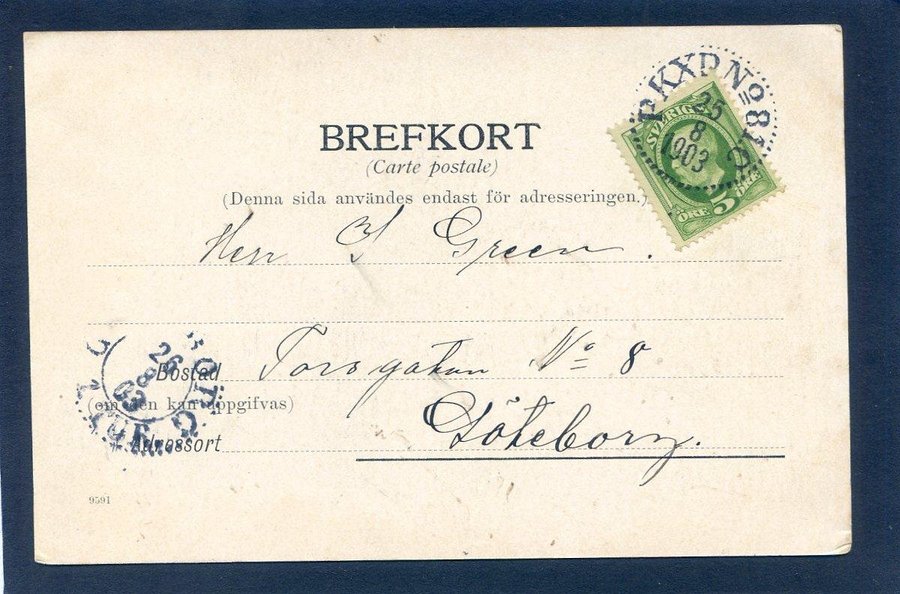 PKXP No 81
25
8
1903
SVERIGE
5 ÖRE
BREFKORT
(Carte postale)
(Denna sida användes endast för adresseringen.)
Herr Green.
Bostad Torsgatan No 8
(om den kan uppgifvas)
Adressort Göteborg.
26
8
03
9591